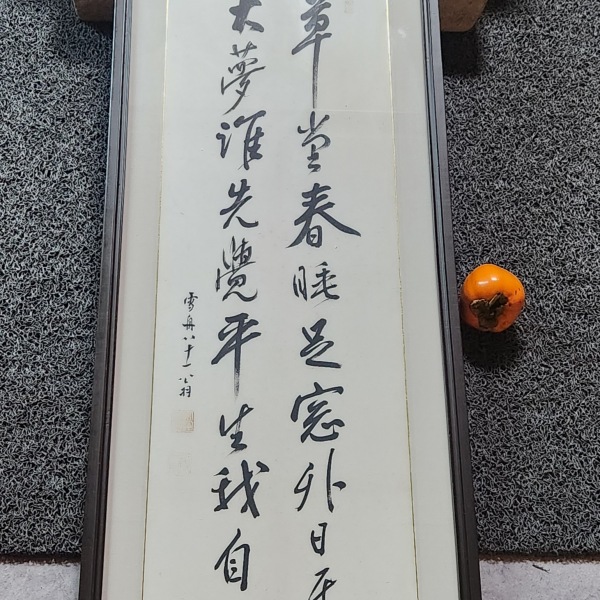 草堂春睡足窓外日
大夢誰先覺平生我自
雪舟八十一翁